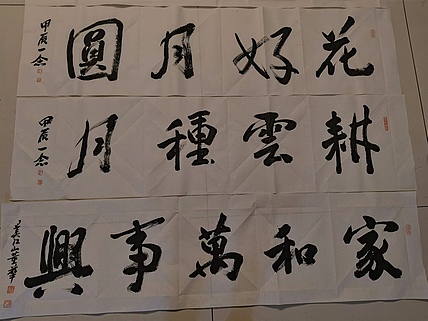 花好月圓
甲辰一念
耕雲種月
甲辰一念
家和萬事興